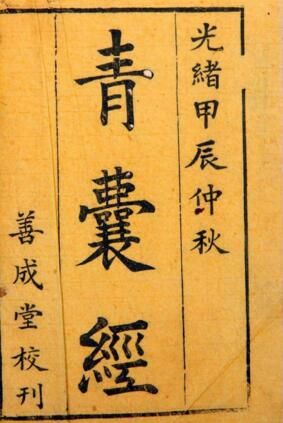 光緒甲辰仲秋
青囊經
善成堂校刊